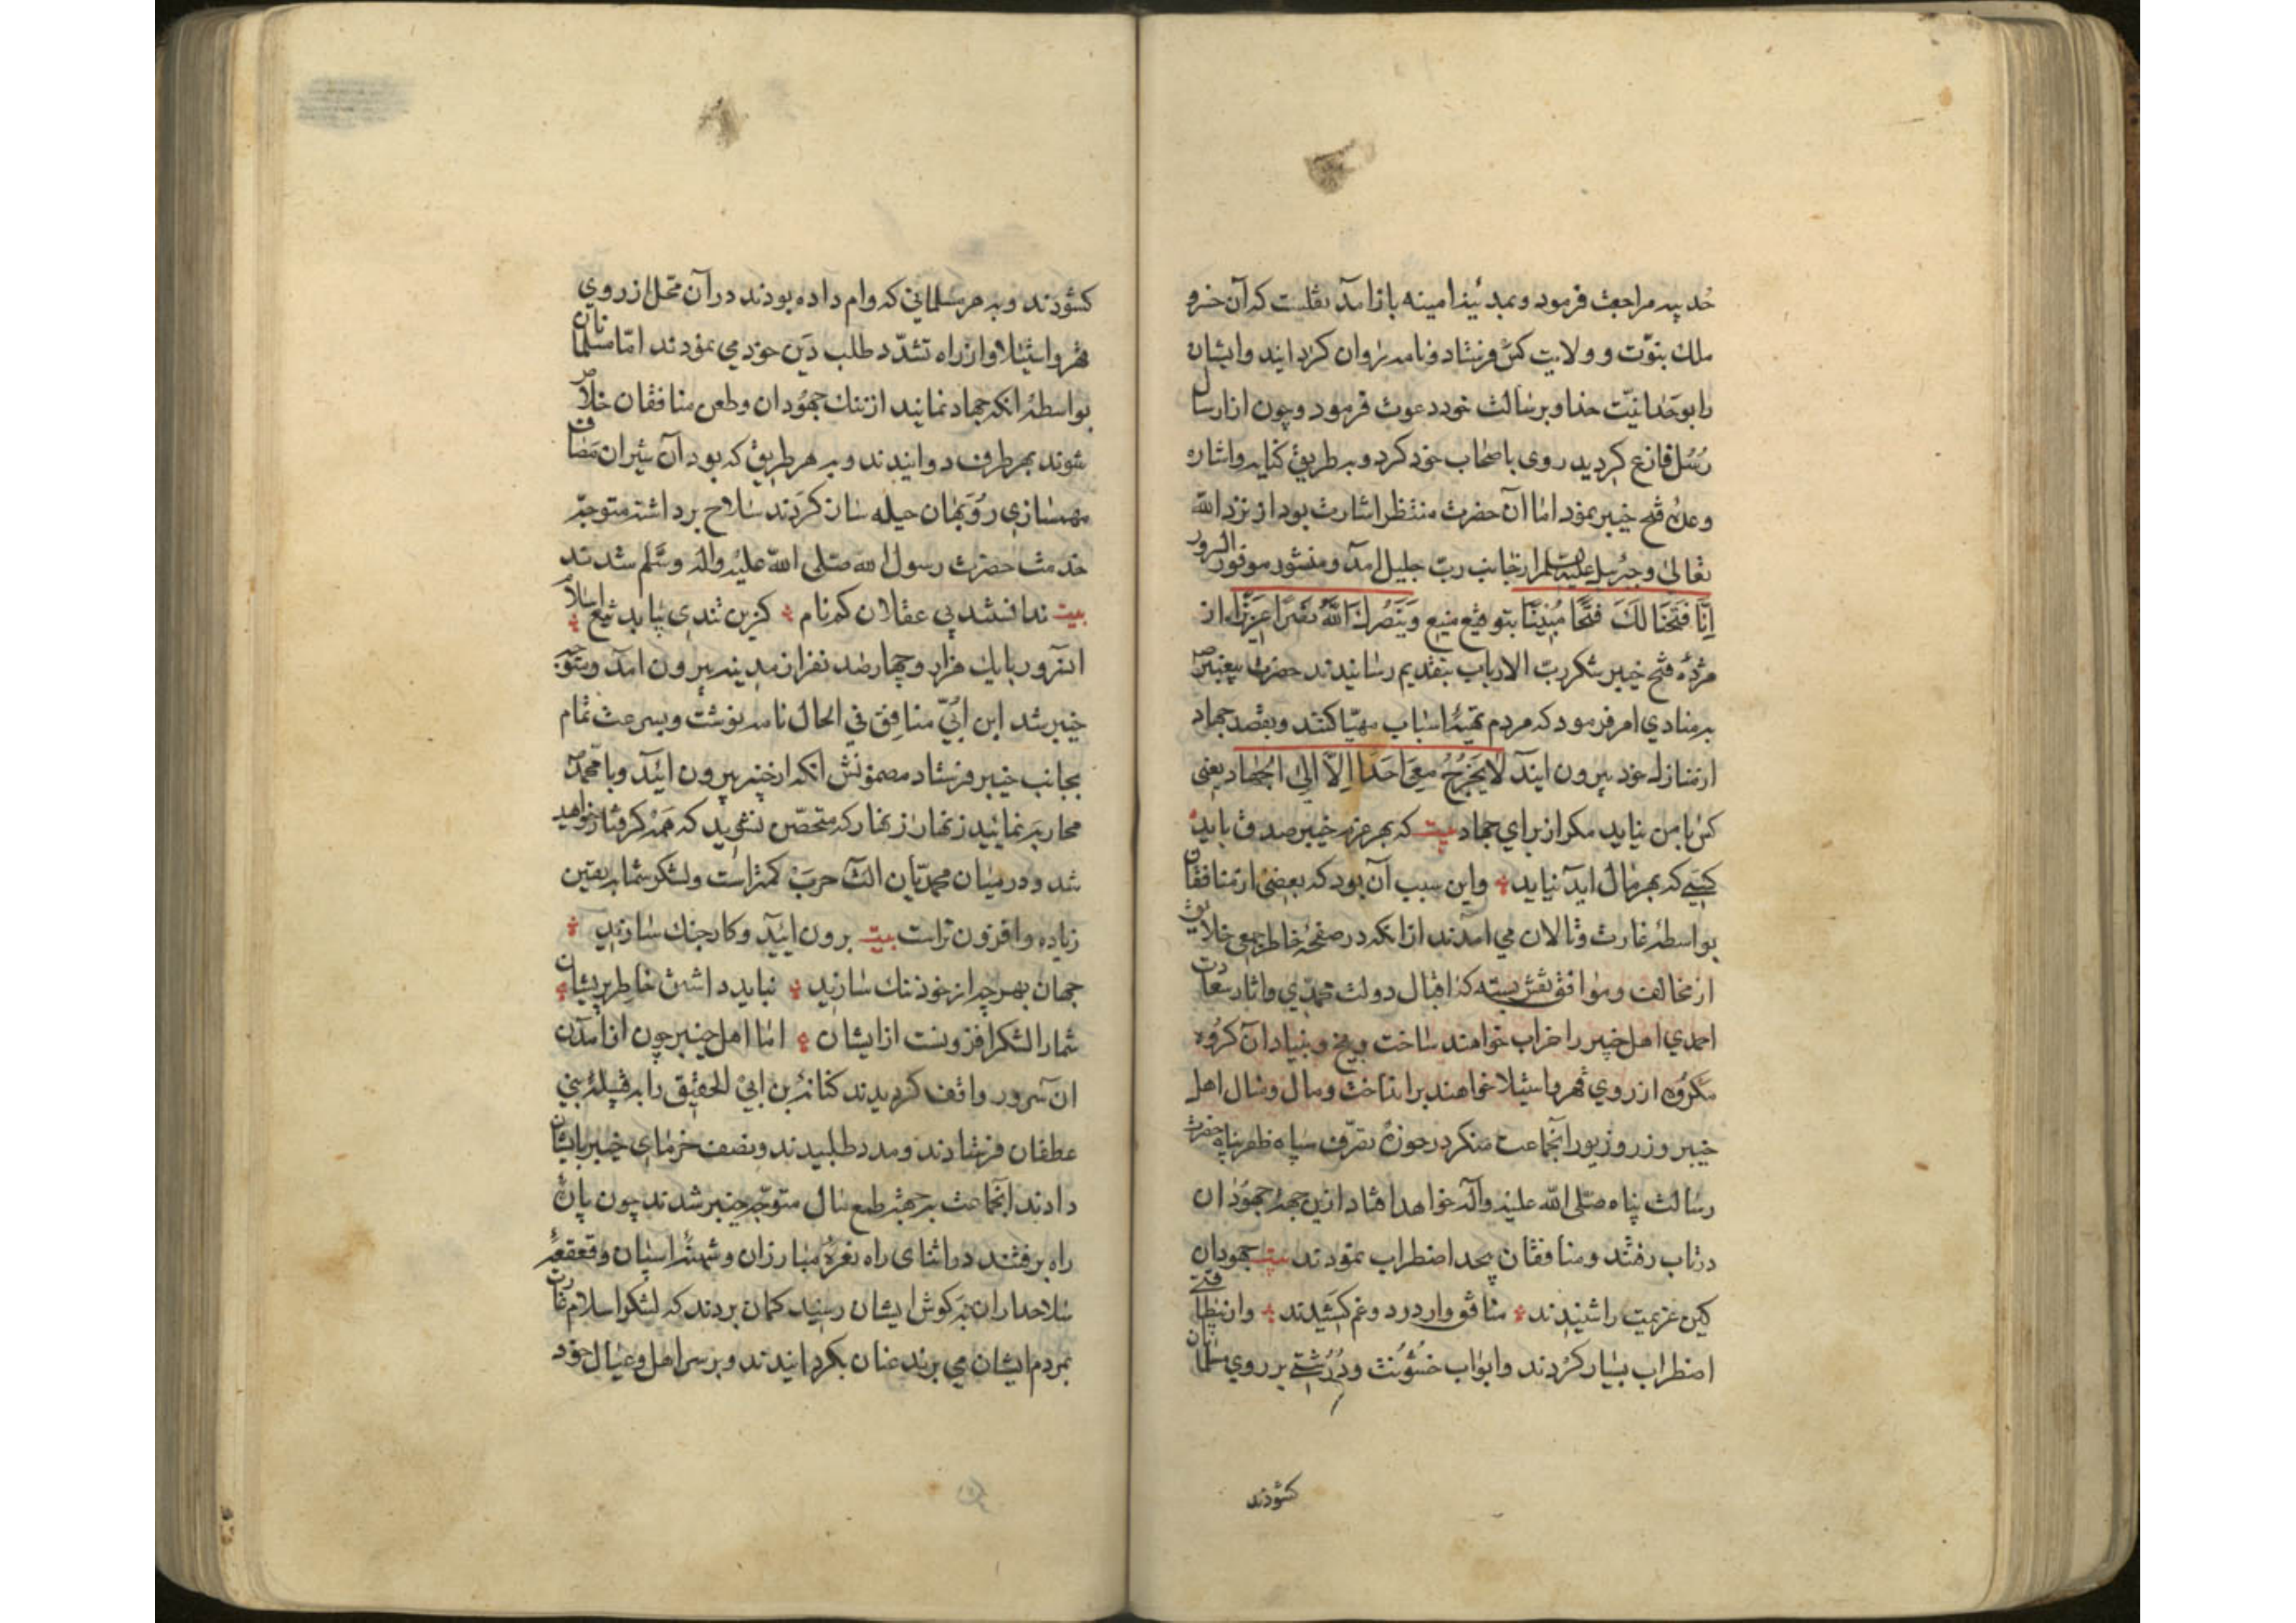 حدیبیه مراجعت فرمود و بمدینهٔ امینه بازآمد نقلست که آن خسرو
ملک نبوّت و ولایت کس فرستاد و نامه روان کردانید و ایشان
را بوحدانیّت خدا و برسالت خود دعوت فرمود و چون از ارسال
رُسُل فارغ کردید روی باصحاب خود کرد و به طریق کنایه و اشاره
وعدهٔ فتح خیبر نمود اما آن حضرت منتظر اشارت بود از نزد الله
تعالی و جبرئیل علیه السلم از جانب ربّ جلیل آمد و منشور موفور السرور
اِنَّا فَتَحْنَا لَكَ فَتْحًا مُبِینًا بتوقیع منیع وَیَنْصُرَكَ اللّٰهُ نَصْرًا عَزِیزًا از
مژدهٔ فتح خیبر شکر ربّ الارباب بتقدیم رسانیدند حضرت پیغمبر ص
به منادی امر فرمود که مردم تهیهٔ اسباب مهیّا کنند و بقصد جهاد
از منازل خود بیرون ایند لا یَخْرُجُ مَعِی اَحَدًا اِلَّا اِلَی الْجِهاد یعنی
کس با من نیاید مکر از برای جهاد بیت که بهر عزم خیبر صدق باید
کسی که بهر مال آید نیاید و این سبب آن بود که بعضی از منافقان
بواسطهٔ غارت و تالان می آمدند از انکه در صفحهٔ خاطر جمعی خلایق
از مخالف و موافق نقش بسته که اقبال دولت محمّدی و اثار سعادت
احمدی اهل خیبر را خراب خواهند ساخت و بیخ و بنیاد آن کروه
مکروه از روی قهر و استیلا خواهند برانداخت و مال و منال اهل
خیبر و زر و زیور آنجماعت منکر در حوزهٔ تصرّف سپاه ظفر پناه حضرت
رسالت پناه صلّی الله علیه وآله خواهد افتاد ازین جهة جهودان
در تاب رفتند و منافقان بیحد اضطراب نمودند بیت جهودان
کین عزیمت را شنیدند منافق وار درد و غم کشیدند و از نیظافتی
اضطراب بسیار کردند و ابواب خشونت و دُرُشتی بر روی مسلمانان
کشودند
کشودند و به هر مسلمانی که وام داده بودند در آن محل از روی
قهر و استیلا و از راه تشدّد طلب دَین خود می نمودند امّا مسلمانان
بواسطهٔ انکه جهاد نمایند از ننك جهودان و طعن منافقان خلاص
شوند بهر طرف دوانیدند و به هر طریق که بود آن شیران مَصاف
مهمسازی روبَهان حیله ساز کردند سلاح برداشته متوجّه
خدمت حضرت رسول الله صلی الله علیه وآله وسلّم شدند
بیت ندانستند بی عقلان کم نام کزین تندی بپاید تیغ اسلام
انسرور با یك هزار و چهار صد نفر از مدینه بیرون امد و متوجّه
خیبر شد ابن اُبیّ منافق فی الحال نامه نوشت و بسرعت تمام
بجانب خیبر فرستاد مضمونش انکه از خیبر بیرون ائید و با محمد ص
محاربه نمایید زنهار از زنهار که متحصّن نشوید که همه کرفتار خواهید
شد و در میان محمدیان الت حرب کمتر است و لشکر شما به یقین
زیاده و افزون تراست بیت برون ایید و کار جنك سازید
جهان بهر چه از خود ننك سازید نباید داشتن خاطر پریشان
شمار الشکر افزونست از ایشان اما اهل خیبر چون از آمدن
ان سرور واقف کردیدند کنانة بن ابی الحقیق را به قبیلهٔ بنی
عطفان فرستادند و مدد طلبیدند و نصف خرمای خیبر بایشان
دادند آنجماعت به جهة طمع مال متوجه خیبر شدند چون پارهٔ
راه برفتند در اثنای راه نعرهٔ مبارزان و شیههٔ اسبان و قعقعهٔ
سلاحداران به کوش ایشان رسید کمان بردند که لشکر اسلام غارت
بمردم ایشان می برند عنان بکردانیدند و بر سر اهل و عیال خود